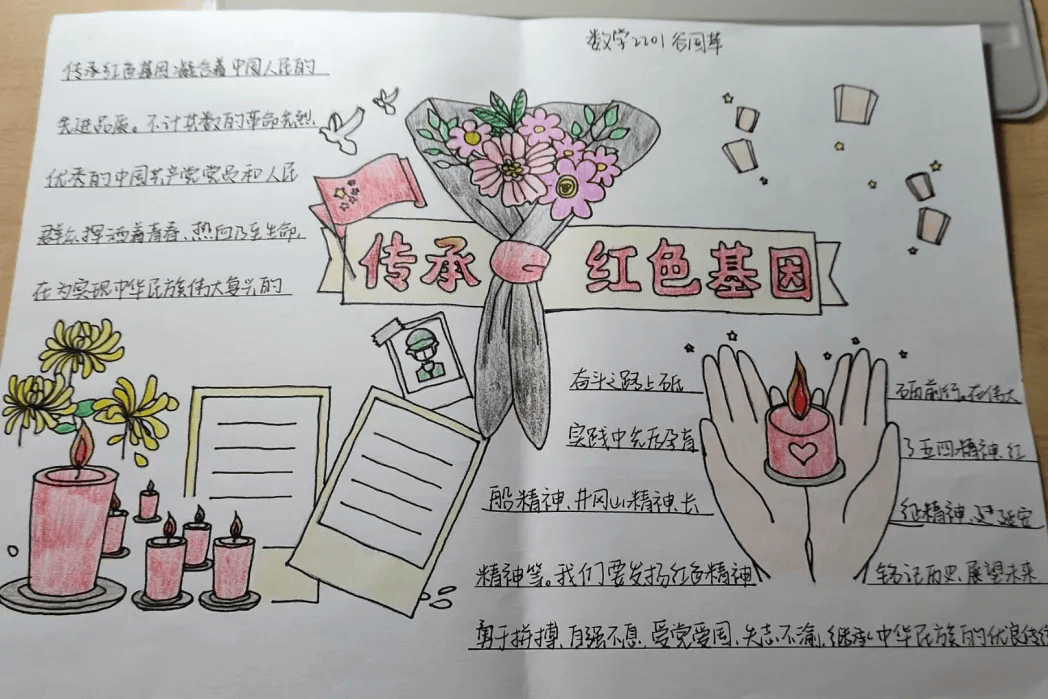 数学2201谷同苹
传承红色基因凝合着中国人民的
先进品质。不计其数的革命先烈、
优秀的中国共产党党员和人民
群众挥洒着青春、热血乃至生命,
在为实现中华民族伟大复兴的
传承 红色基因
奋斗之路上砥 砺前行。在伟大
实践中先后孕育 了五四精神、红
船精神、井冈山精神、长 征精神、延安
精神等。我们要发扬红色精神 铭记历史、展望未来
勇于拼搏、自强不息、爱党爱国、矢志不渝,继承中华民族的优良传统